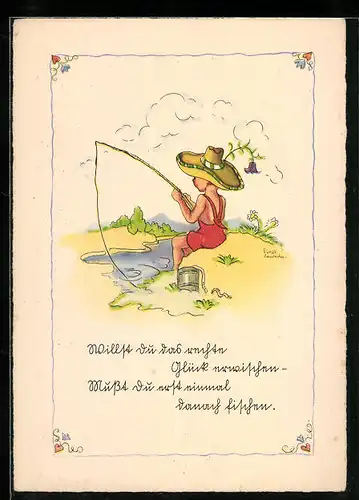 Willst du das rechte
Glück erwischen -
Mußt du erst einmal
danach fischen.